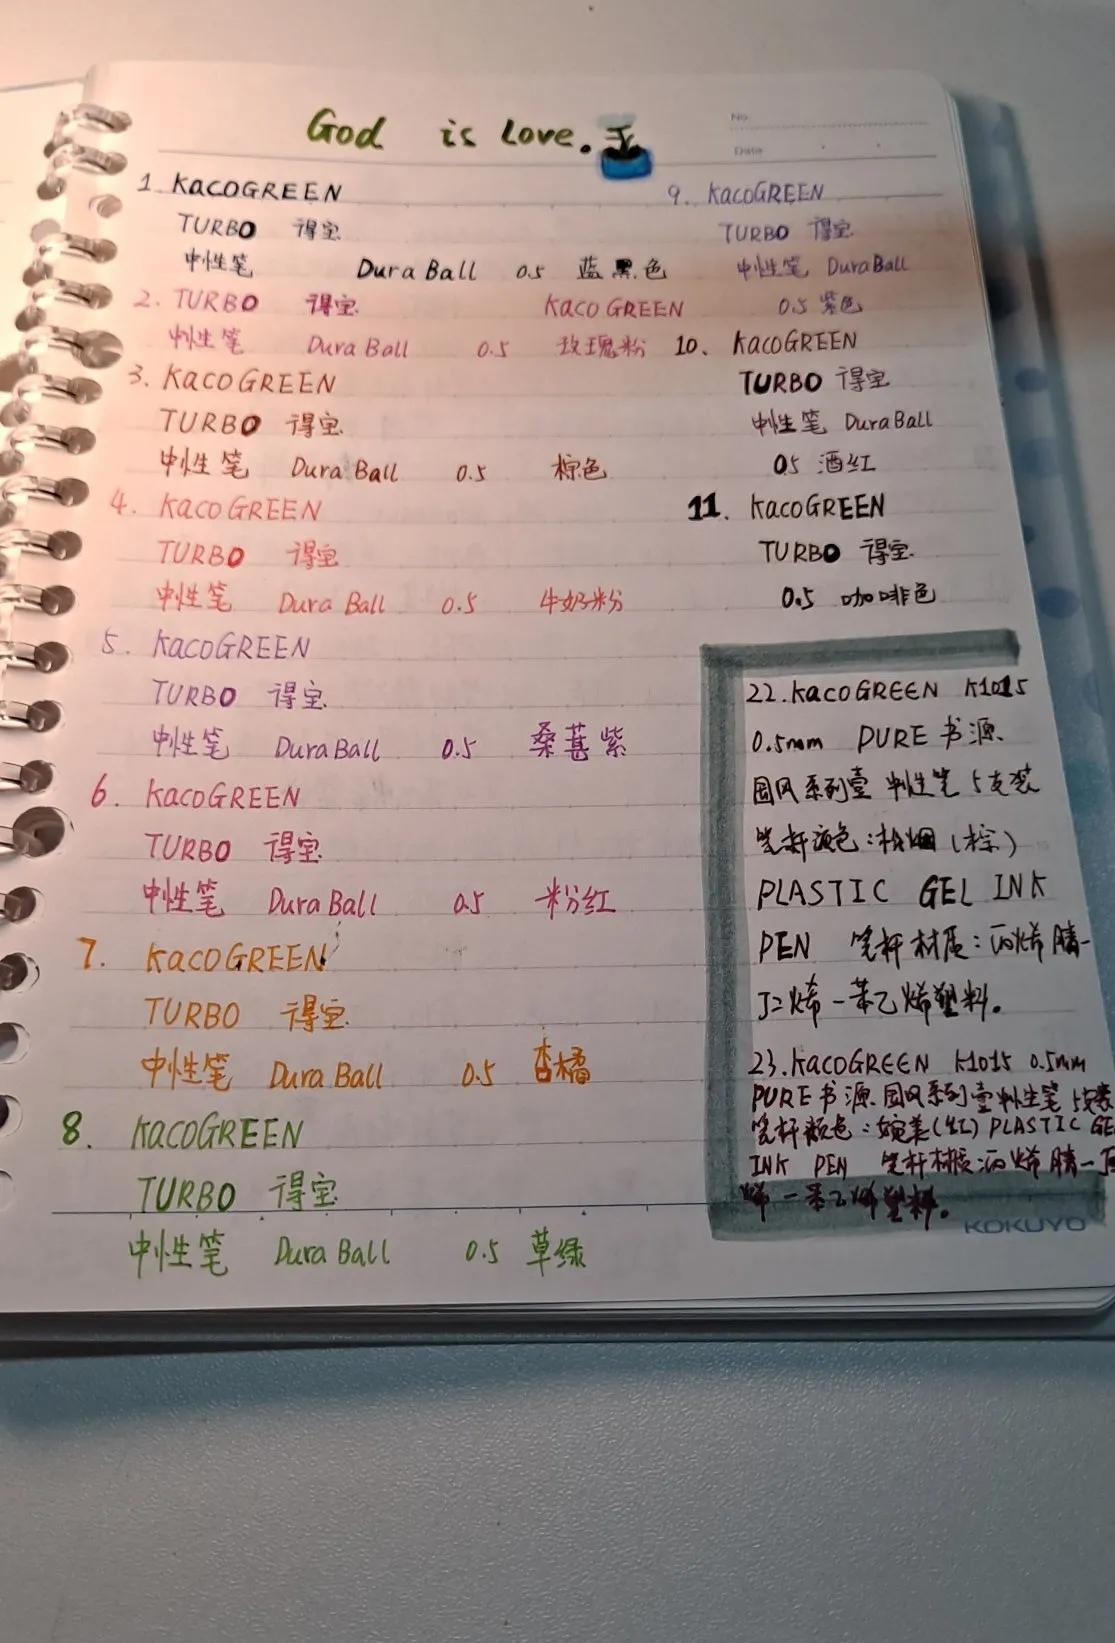 God is Love.
No.
Date
1. KACOGREEN
TURBO 得宝
中性笔 Dura Ball 0.5 蓝黑色
2. TURBO 得宝 KACO GREEN
中性笔 Dura Ball 0.5 玫瑰粉
3. KACOGREEN
TURBO 得宝
中性笔 Dura Ball 0.5 棕色
4. KACOGREEN
TURBO 得宝
中性笔 Dura Ball 0.5 牛奶粉
5. KACOGREEN
TURBO 得宝
中性笔 Dura Ball 0.5 桑葚紫
6. KACOGREEN
TURBO 得宝
中性笔 Dura Ball 0.5 粉红
7. KACOGREEN
TURBO 得宝
中性笔 Dura Ball 0.5 杏橘
8. KACOGREEN
TURBO 得宝
中性笔 Dura Ball 0.5 草绿
9. KACOGREEN
TURBO 得宝
中性笔 DuraBall
0.5 紫色
10、KACOGREEN
TURBO 得宝
中性笔 DuraBall
0.5 酒红
11. KACOGREEN
TURBO 得宝
0.5 咖啡色
22. KACOGREEN K1015
0.5mm PURE 书源
国风系列壹 中性笔 5支装
笔杆颜色:松烟(棕)
PLASTIC GEL INK
PEN 笔杆材质:丙烯腈-
丁二烯-苯乙烯塑料。
23. KACOGREEN K1015 0.5mm
PURE 书源 国风系列壹中性笔 5支装
笔杆颜色:婉美(红) PLASTIC GE
INK PEN 笔杆材质:丙烯腈-丁
烯-苯乙烯塑料。
KOKUYO